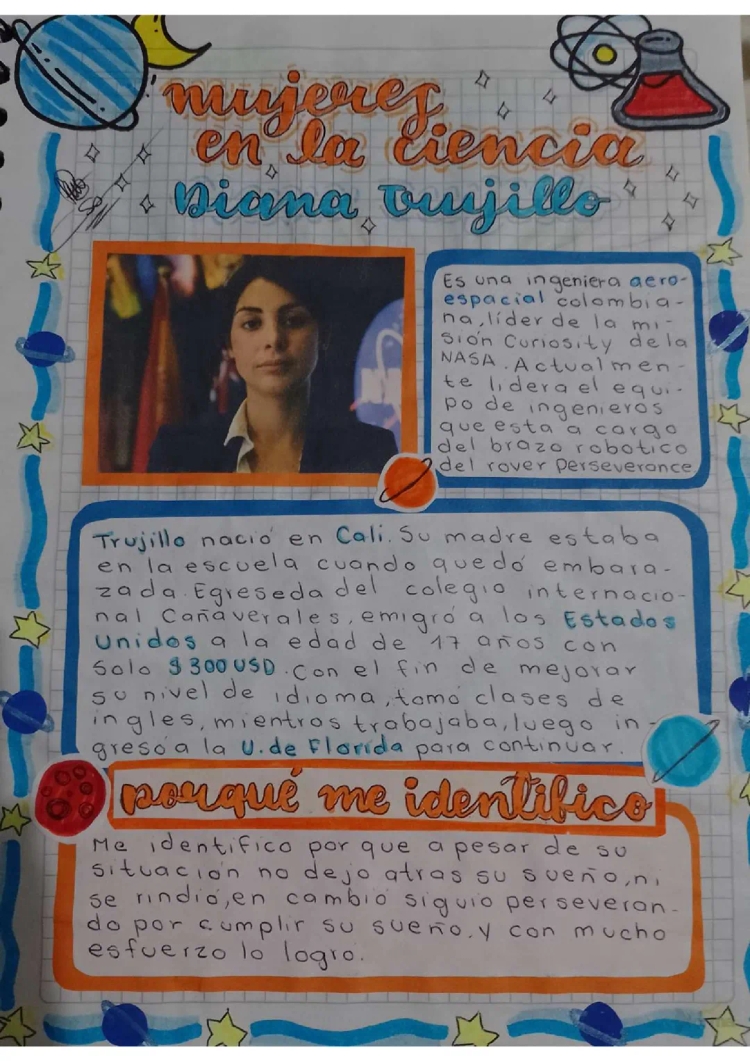 mujeres
en la ciencia
Diana Trujillo
Es una ingeniera aero-
espacial colombia-
na, líder de la mi-
sión Curiosity de la
NASA. Actualmen-
te lidera el equi-
po de ingenieros
que esta a cargo
del brazo robotico
del rover perseverance
Trujillo nació en Cali. Su madre estaba
en la escuela cuando quedó embara-
zada. Egreseda del colegio internacio-
nal Cañaverales, emigró a los Estados
Unidos a la edad de 17 años con
solo $300 USD. Con el fin de mejorar
su nivel de idioma, tomo clases de
ingles, mientros trabajaba, luego in-
gresó a la U. de Florida para continuar.
porqué me identifico
Me identifico por que a pesar de su
situación no dejo atras su sueño, ni
se rindió, en cambio siguio perseveran-
do por cumplir su sueño. y con mucho
esfuerzo lo logro.